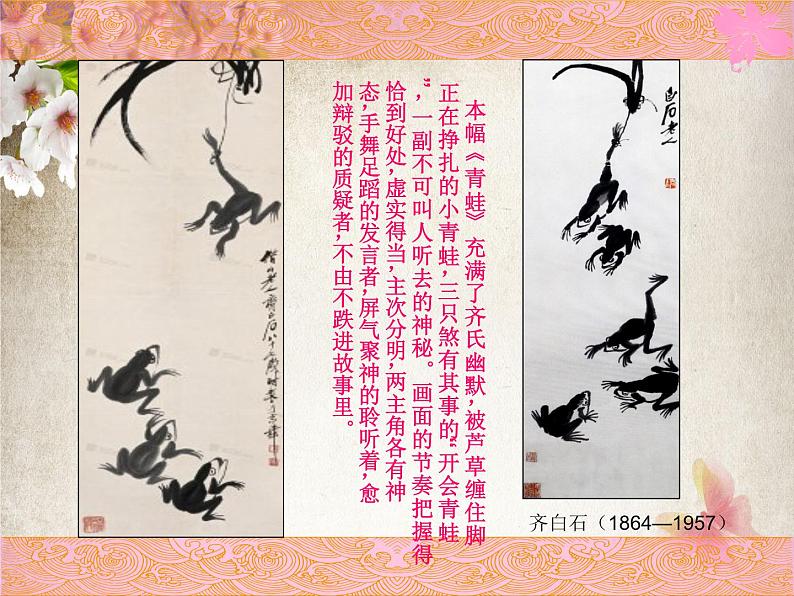 本幅《青蛙》充满了齐氏幽默,被芦草缠住脚
正在挣扎的小青蛙,三只煞有其事的“开会青蛙
”,一副不可叫人听去的神秘。画面的节奏把握得
恰到好处,虚实得当,主次分明,两主角各有神
态,手舞足蹈的发言者,屏气聚神的聆听着,愈
加辩驳的质疑者,不由不跌进故事里。
白石老人
借山老人齐白石八十七岁时
齐白石（1864—1957）